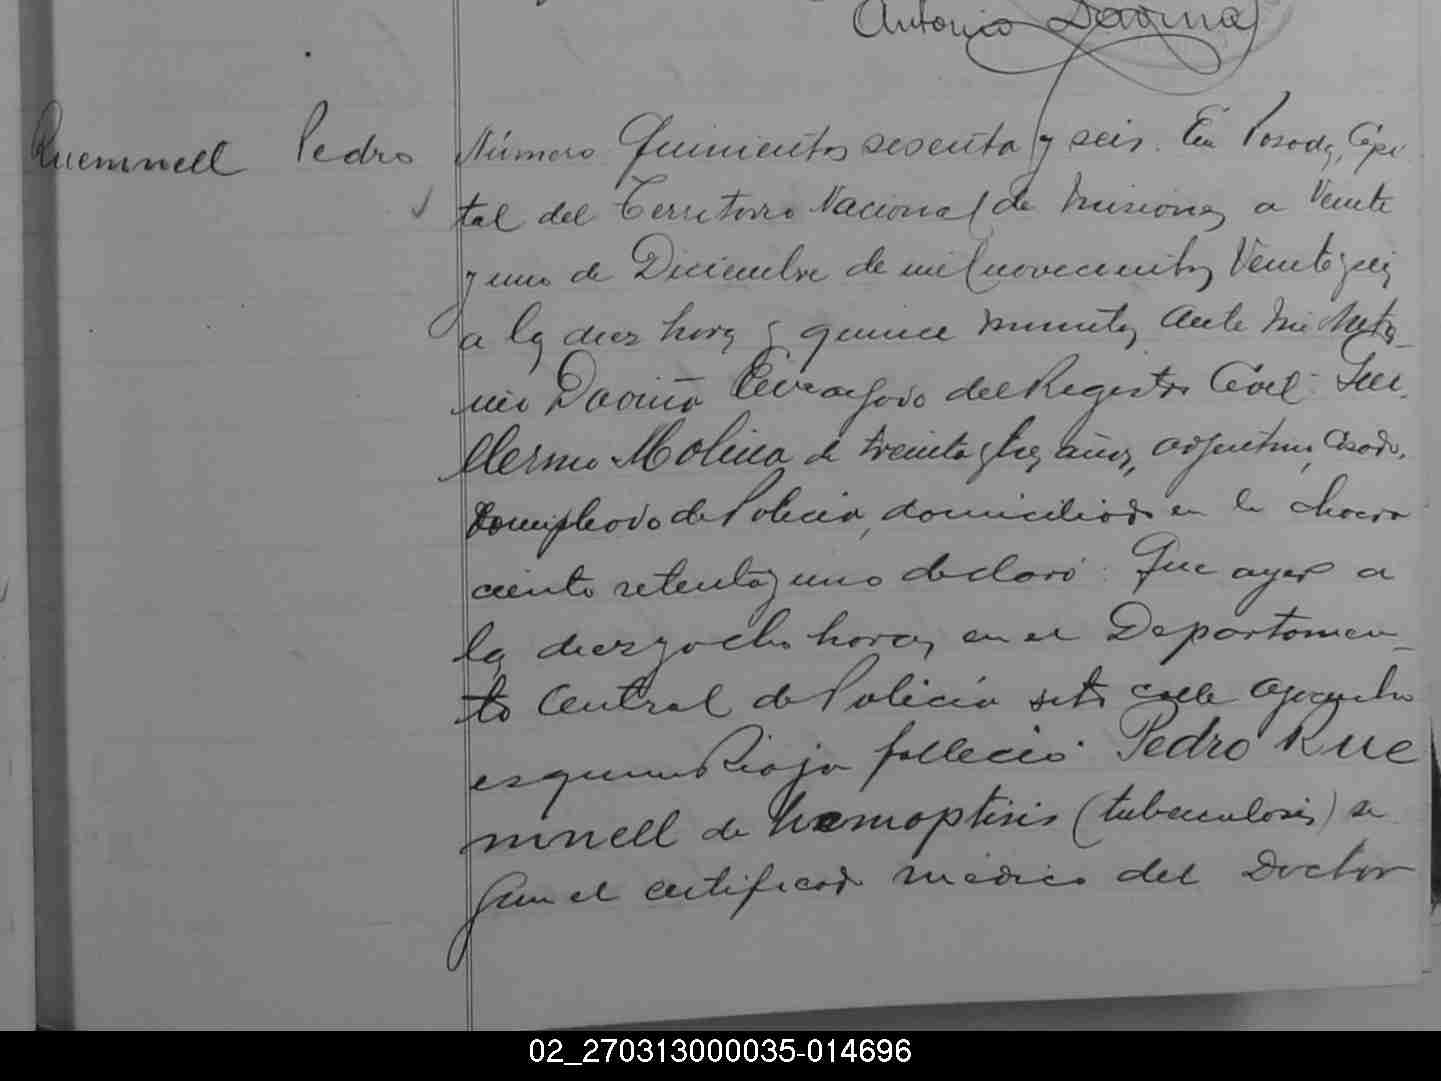 Antonio Daviña
Ruemnell Pedro
Número Quinientos sesenta y seis. En Posadas, Capi
tal del Territorio Nacional de Misiones a Veinte
y uno de Diciembre de mil novecientos Veinte y seis
a las diez horas y quince minutos ante mi Anto-
nio Daviña Encargado del Registro Civil: Gui
llermo Molina de treinta y tres años, argentino, casado,
Empleado de Policia, domiciliado en la chacra
ciento setenta y uno declaró: Que ayer a
las diez y ocho horas en el Departamen-
to Central de Policía sito calle Ayacucho
esquina Rioja falleció Pedro Rue
mnell de hemoptisis (tuberculosis) se
gun el certificado médico del Doctor
02_270313000035-014696